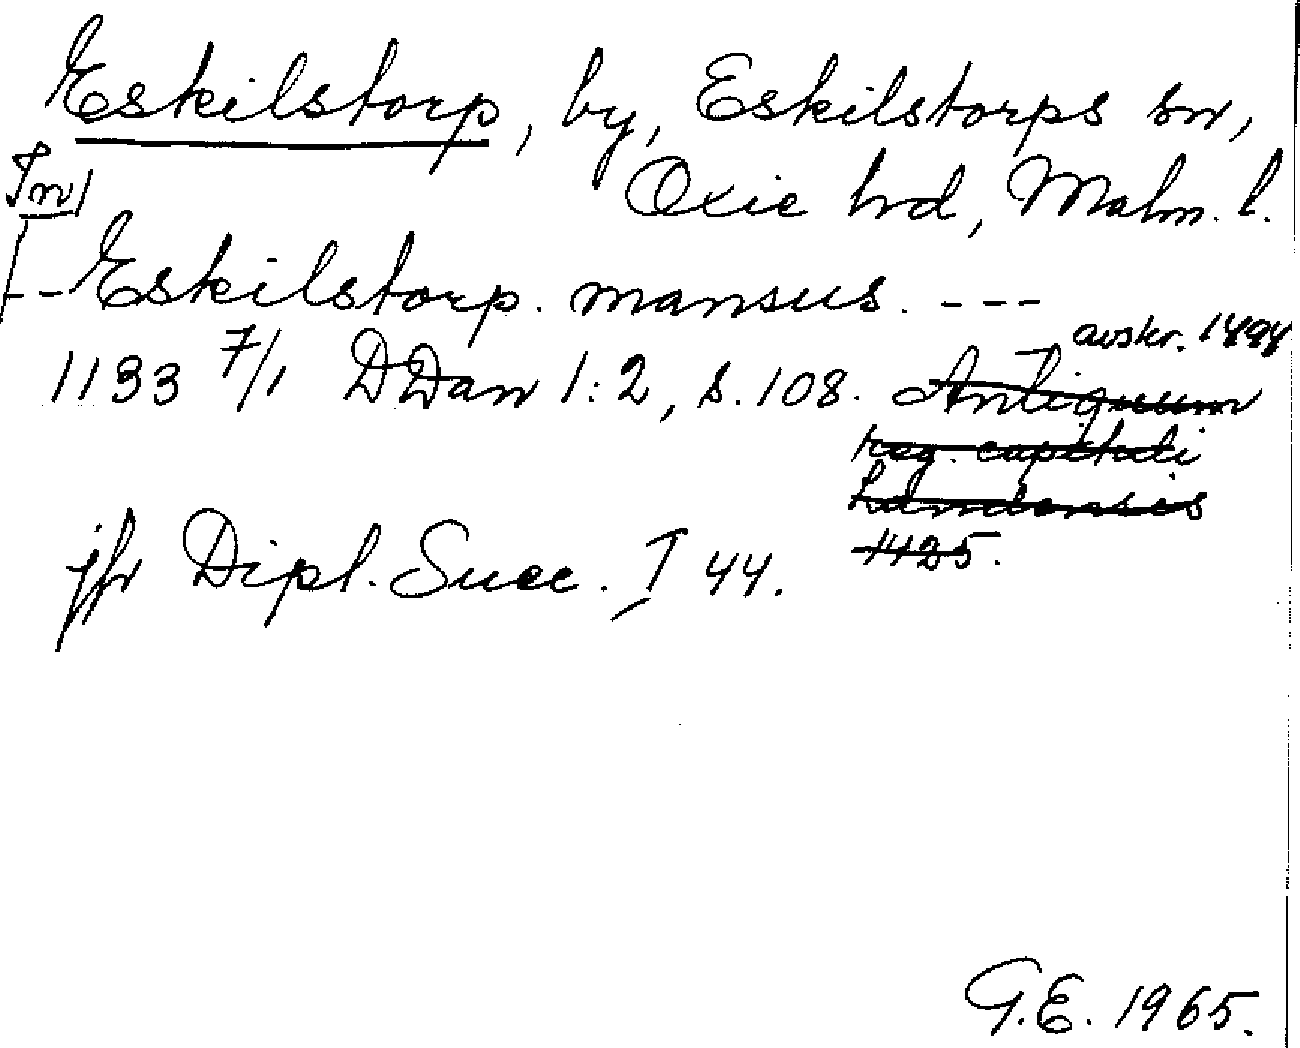 Eskilstorp, by, Eskilstorps sn,
Oxie hd, Malm. l.
In
-- Eskilstorp. mansus. ---
avskr. 1494
1133 7/1 DDan 1:2, s. 108. Antiquum
reg. capituli
Lundensis
1425.
jfr Dipl. Suec. I 44.
G.E. 1965.